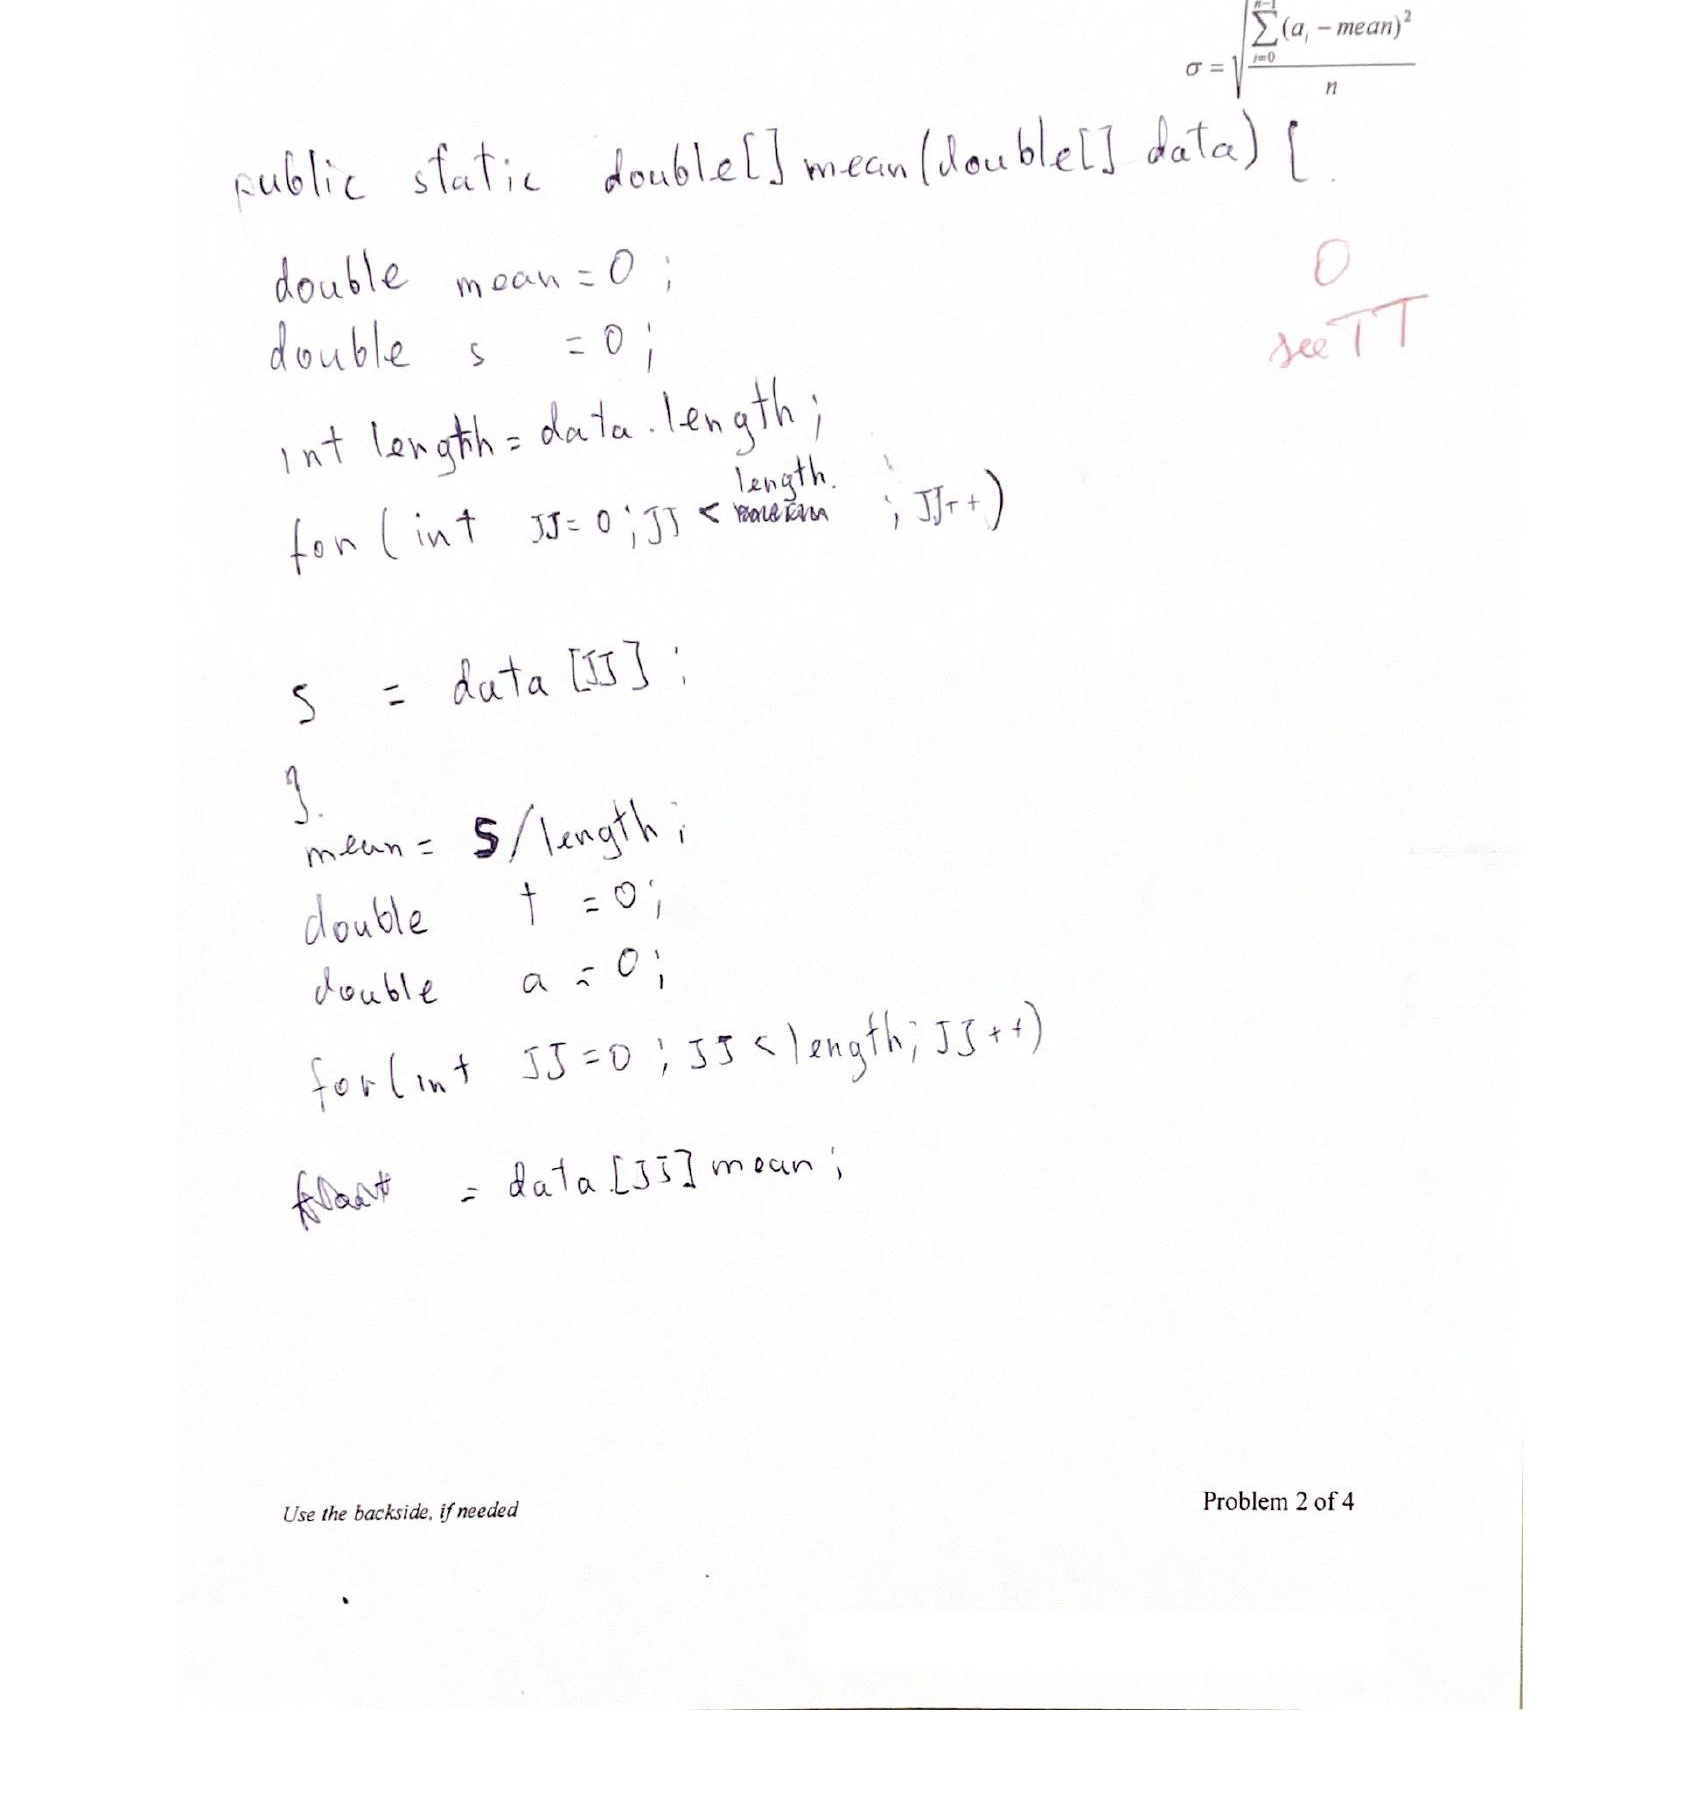 σ = √ n-1 ∑ i=0 (aᵢ – mean)² / n
public static double[] mean(double[] data) {
double mean = 0 ;
double s = 0 ;
0
see TT
int length = data.length ;
length
for ( int JJ = 0 ; JJ < ; JJ++)
s = data [JJ] ;
}
mean = S/length ;
double t = 0 ;
double a = 0 ;
for(int JJ = 0 ; JJ < length ; JJ++)
= data [JJ] mean ;
Use the backside, if needed
Problem 2 of 4